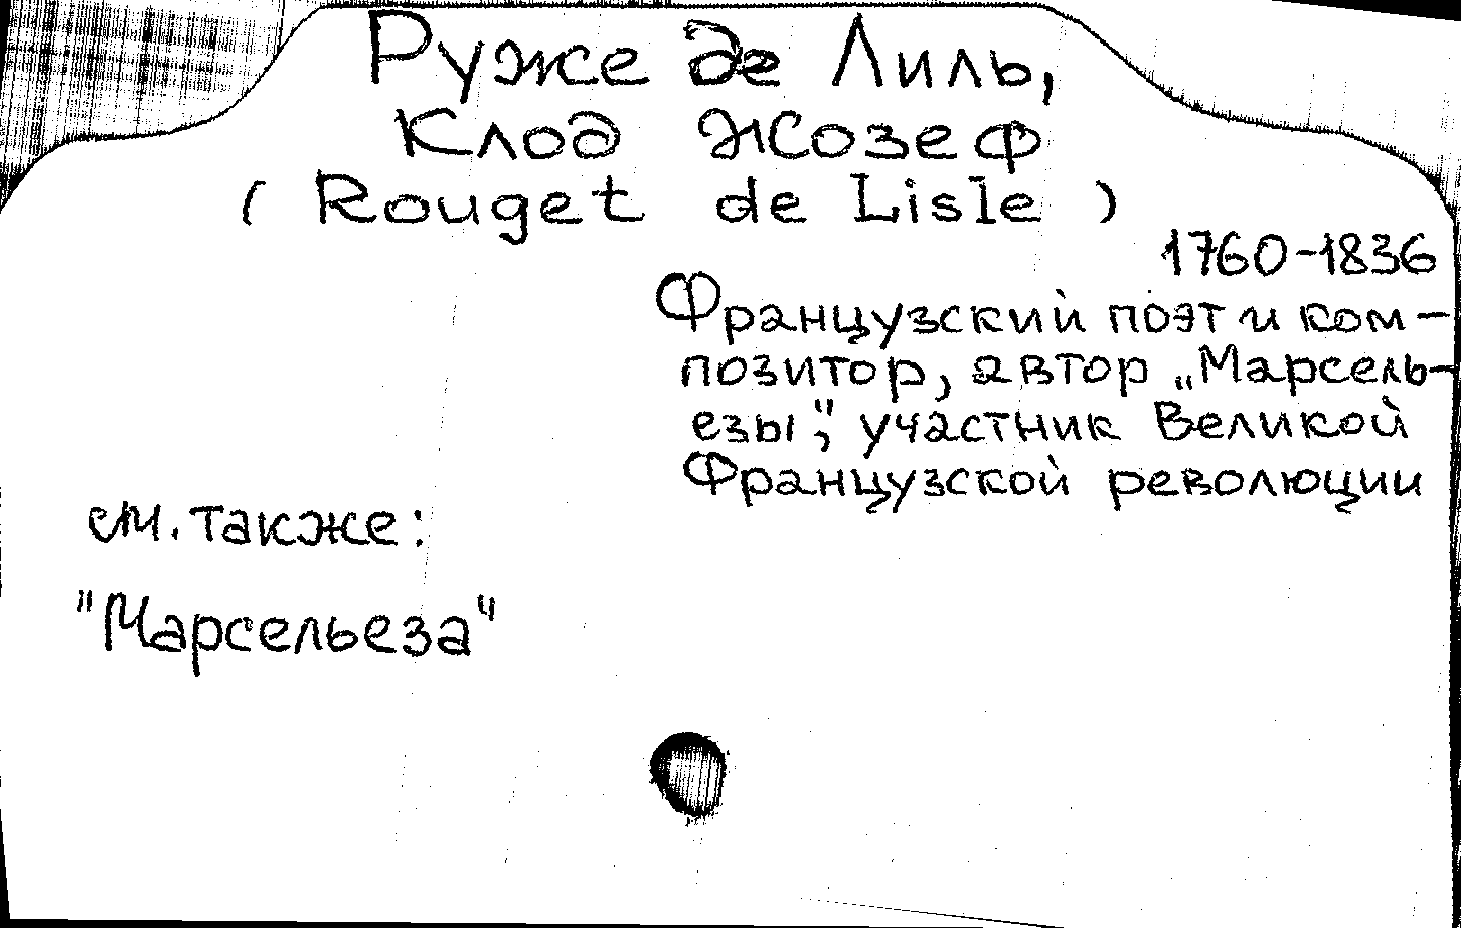 Руже де Лиль,
Клод Жозеф
( Rouget de Lisle )
1760-1836
Французский поэт и ком-
позитор, автор „Марсель-
езы", участник Великой
Французской революции
см. также:
"Марсельеза"